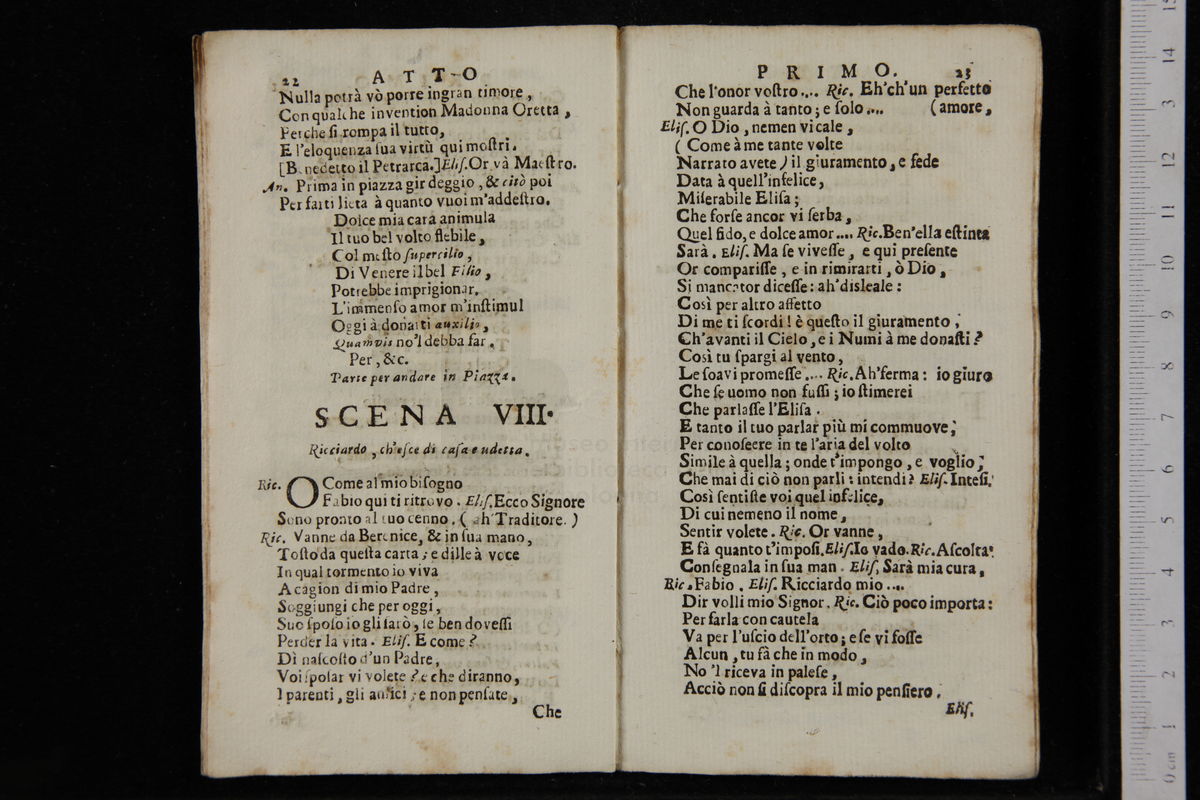 22 ATTO
Nulla potrà vò porre in gran timore,
Con qualche invention Madonna Oretta,
Perche ſi rompa il tutto,
E l'eloquenza ſua virtù qui moſtri.
[Benedetto il Petrarca.] Eliſ. Or và Maeſtro.
An. Prima in piazza gir deggio, & citò poi
Per farti lieta à quanto vuoi m'addeſtro.
Dolce mia cara animula
Il tuo bel volto flebile,
Col meſto ſupercilio,
Di Venere il bel Filio,
Potrebbe imprigionar.
L'immenſo amor m'inſtimul
Oggi à donarti auxilio,
Quamvis no'l debba far.
Per, &c.
Parte per andare in Piazza.
SCENA VIII.
Ricciardo, ch'eſce di caſa e udetta.
Ric. O Come al mio biſogno
Fabio qui ti ritrovo. Eliſ. Ecco Signore
Sono pronto al tuo cenno. (ah Traditore.)
Ric. Vanne da Berenice, & in ſua mano,
Toſto da queſta carta; e dille à voce
In qual tormento io viva
A cagion di mio Padre,
Soggiungi che per oggi,
Suo ſpoſo io gli ſarò, ſe ben doveſſi
Perder la vita. Eliſ. E come?
Di naſcoſto d'un Padre,
Voi ſpoſar vi volete? e che diranno,
I parenti, gli amici; e non penſate,
Che
PRIMO. 23
Che l'onor voſtro.... Ric. Eh'ch'un perfetto
Non guarda à tanto; e ſolo.... (amore,
Eliſ. O Dio, nemen vi cale,
( Come à me tante volte
Narrato avete) il giuramento, e fede
Data à quell'infelice,
Miſerabile Eliſa;
Che forſe ancor vi ſerba,
Quel fido, e dolce amor.... Ric. Ben'ella eſtinta
Sarà. Eliſ. Ma ſe viveſſe, e qui preſente
Or compariſſe, e in rimirarti, ò Dio,
Si mancator diceſſe: ah'disleale:
Così per altro affetto
Di me ti ſcordi! è queſto il giuramento,
Ch'avanti il Cielo, e i Numi à me donaſti?
Così tu ſpargi al vento,
Le ſoavi promeſſe.... Ric. Ah'ferma: io giuro
Che ſe uomo non fuſſi; io ſtimerei
Che parlaſſe l'Eliſa.
E tanto il tuo parlar più mi commuove;
Per conoſeere in te l'aria del volto
Simile à quella; onde t'impongo, e voglio;
Che mai di ciò non parli: intendi? Eliſ. Inteſi.
Così ſentiſte voi quel infelice,
Di cui nemeno il nome,
Sentir volete. Ric. Or vanne,
E fà quanto t'impoſi. Eliſ. Io vado. Ric. Aſcolta:
Conſegnala in ſua man. Eliſ. Sarà mia cura,
Ric. Fabio. Eliſ. Ricciardo mio....
Dir volli mio Signor. Ric. Ciò poco importa:
Per farla con cautela
Va per l'uſcio dell'orto; e ſe vi foſſe
Alcun, tu fà che in modo,
No'l riceva in paleſe,
Acciò non ſi diſcopra il mio penſiero.
Eliſ.